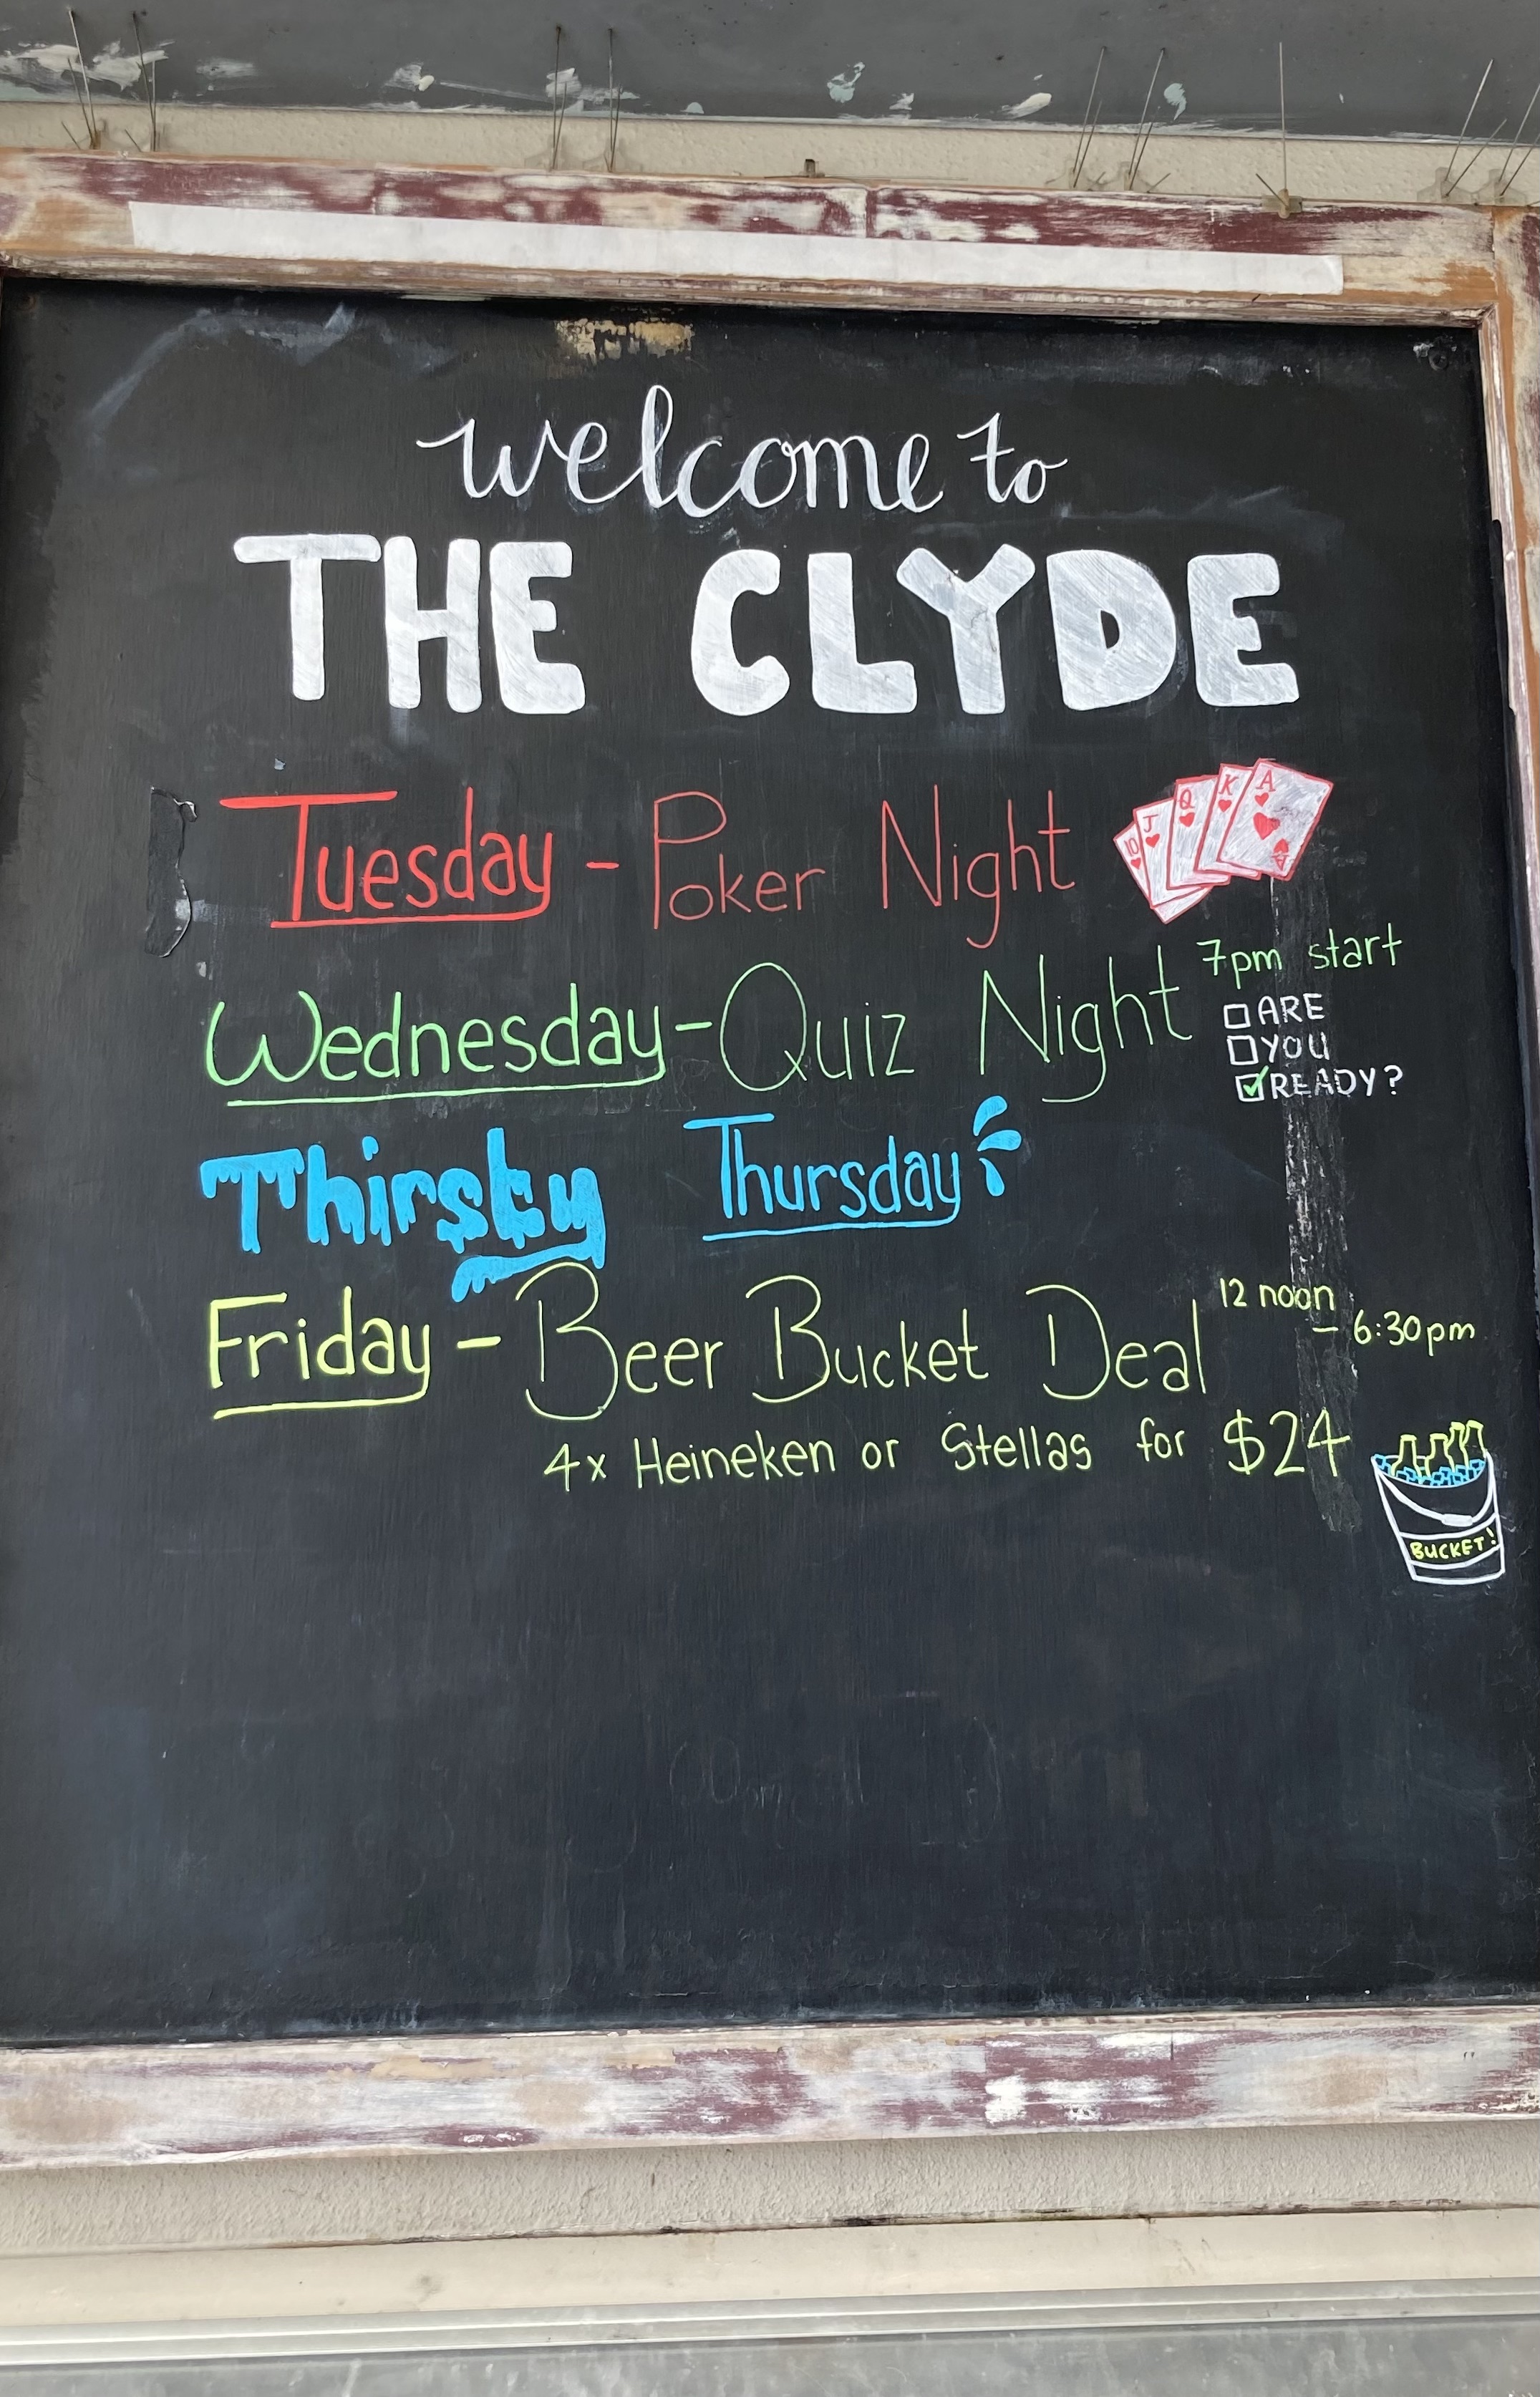 welcome to
THE CLYDE
Tuesday - Poker Night
10 J Q K A
A
Wednesday - Quiz Night
7pm start
ARE
YOU
READY?
Thirsty Thursday
Friday - Beer Bucket Deal
12 noon
- 6:30pm
4x Heineken or Stellas for $24
BUCKET!